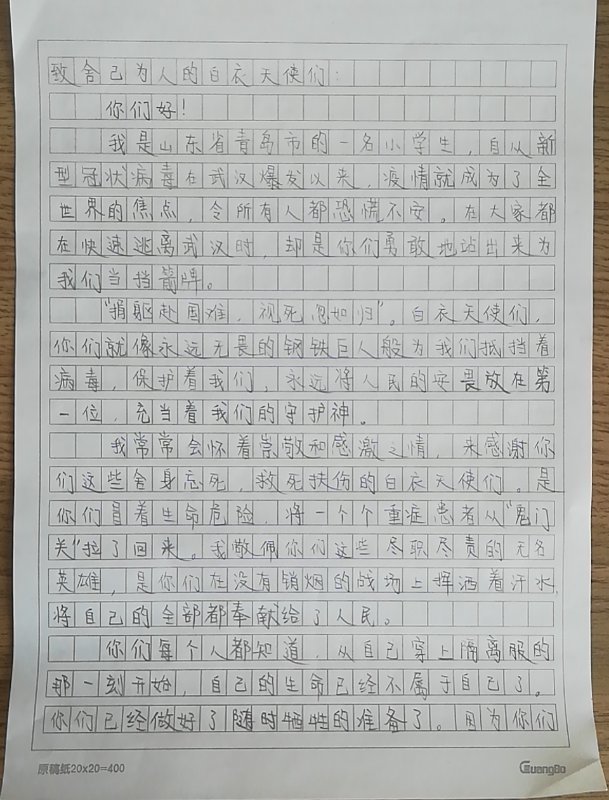 致舍己为人的白衣天使们：
你们好！
我是山东省青岛市的一名小学生，自从新
型冠状病毒在武汉爆发以来，疫情就成为了全
世界的焦点，令所有人都恐慌不安。在大家都
在快速逃离武汉时，却是你们勇敢地站出来为
我们当挡箭牌。
“捐躯赴国难，视死忽如归”。白衣天使们，
你们就像永远无畏的钢铁巨人般为我们抵挡着
病毒，保护着我们，永远将人民的安畏放在第
一位，充当着我们的守护神。
我常常会怀着崇敬和感激之情，来感谢你
们这些舍身忘死，救死扶伤的白衣天使们。是
你们冒着生命危险，将一个个重症患者从“鬼门
关”拉了回来。我敬佩你们这些尽职尽责的无名
英雄，是你们在没有销烟的战场上挥洒着汗水，
将自己的全部都奉献给了人民。
你们每个人都知道，从自己穿上隔离服的
那一刻开始，自己的生命已经不属于自己了。
你们已经做好了随时牺牲的准备了。因为你们
原稿纸20x20=400 GuangBo